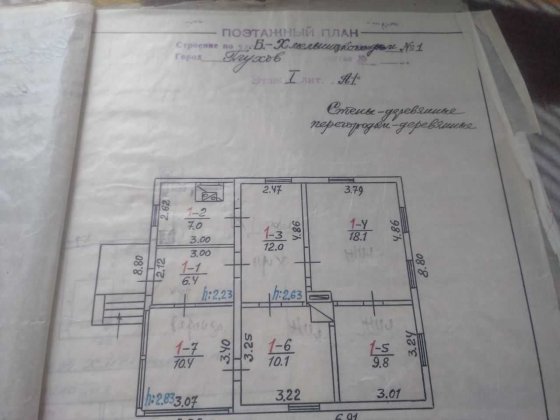 ПОЭТАЖНЫЙ ПЛАН
Строение по ул. Б.-Хмельницкого №1
Город Глухов
Этаж I лит. А1
Стены-деревянные
перегородки-деревянные
2.47 3.79
2.62
1-2
7.0
3.00
1-3
12.0
4.86
1-4
18.1
4.86
8.80
8.80
2.12
3.00
1-1
6.4
h:2.23
h:2.63
1-7
10.4
3.40
3.25
1-6
10.1
1-5
9.8
3.24
h:2.83
3.07
3.22
3.01
6.91